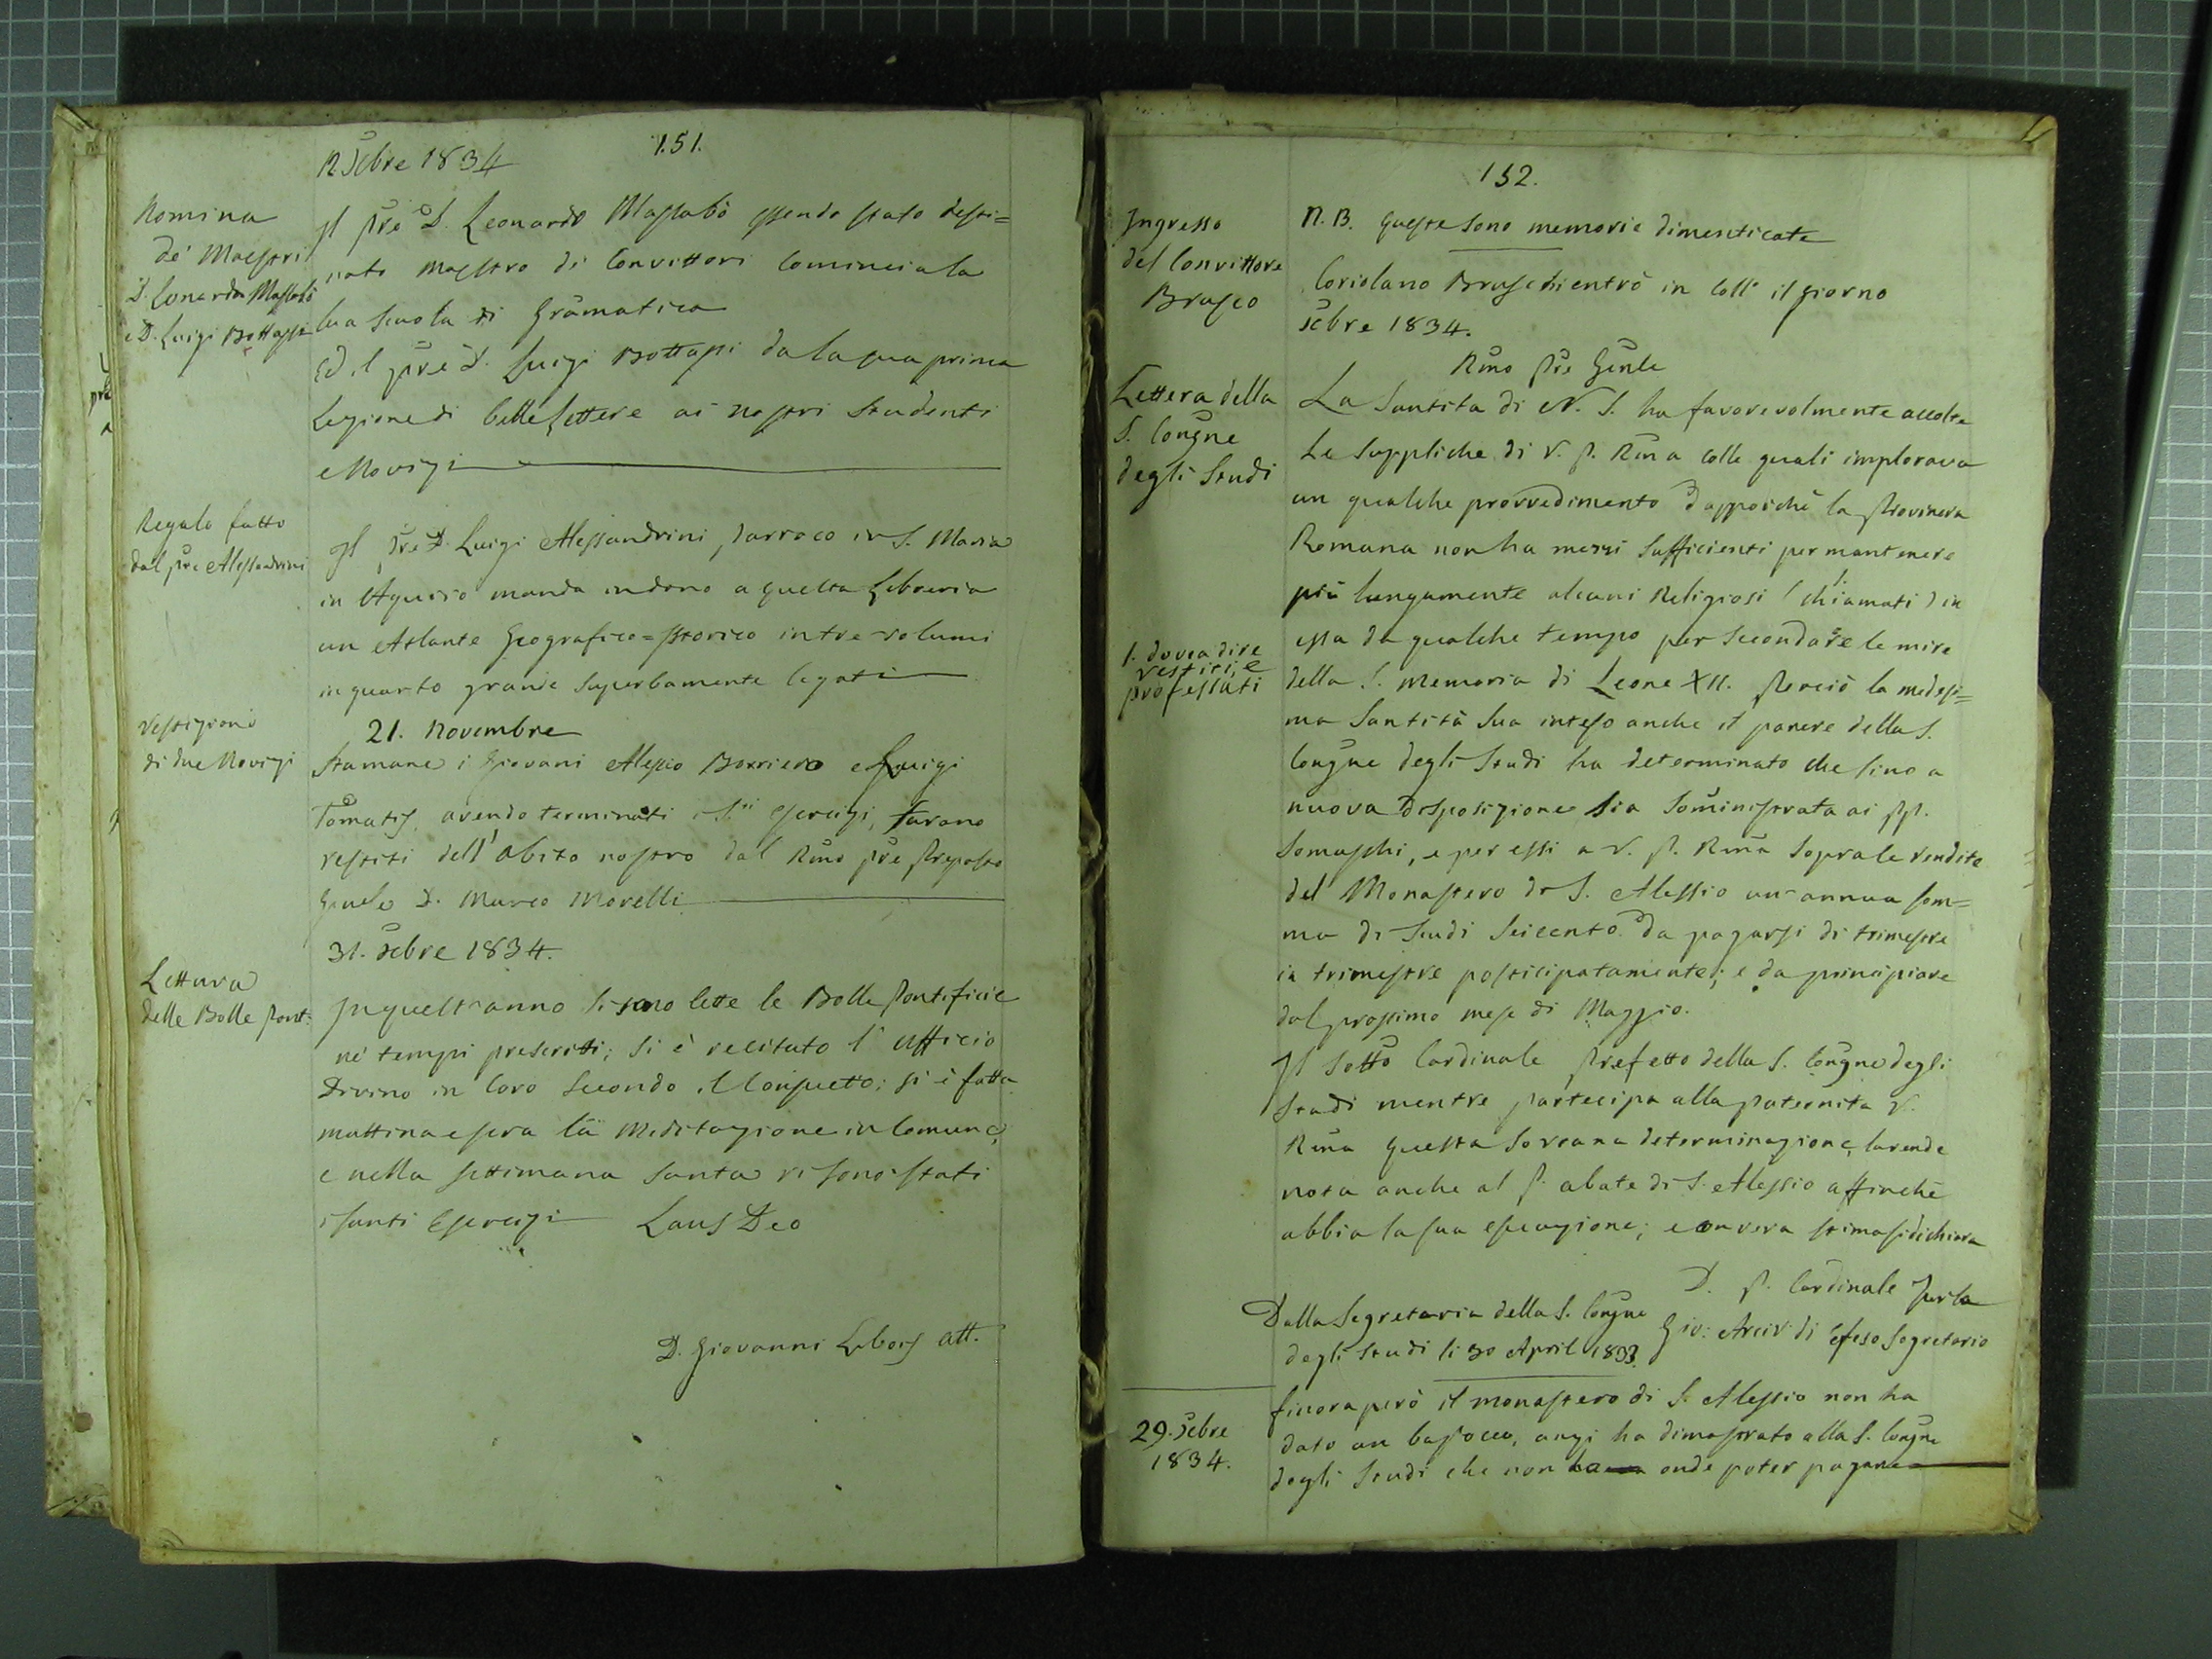 151.
12 Xbre 1834
Nomina
de' Maestri
D. Leonardo Massabò
e D. Luigi Bottassi
Il Pre D. Leonardo Massabò essendo stato desti=
nato maestro di Convittori comincia la
sua Scuola di Gramatica
Ed il Pre D. Luigi Bottassi dà la sua prima
Lezione di belle Lettere ai nostri Studenti
e Novizi
Regalo fatto
dal Pre Alessandrini
Il Pre D. Luigi Alessandrini, Parroco in S. Maria
in Aquiro manda in dono a questa Libreria
un Atlante Geografico=Storico in tre volumi
in quarto grande superbamente legati
Vestizione
di due Novizi
21. Novembre
Stamane i Giovani Alessio Borriero e Luigi
Tomatis, avendo terminati i Sti Esercizi, furono
vestiti dell'abito nostro dal Rmo Pre Preposto
Gnle D. Marco Morelli
31. Xebre 1834.
Lettura
delle Bolle Pont:
In quest'anno si sono lette le Bolle Pontificie
ne' tempi prescritti; si è recitato l'Ufficio
Divino in Coro secondo il Consueto; si è fatta
mattina e sera la Meditazione in Comune,
e nella settimana santa vi sono stati
i santi Esercizi Laus Deo
D. Giovanni Libois att.
152.
Ingresso
del Convittore
Brusco
N. B. Queste sono memorie dimenticate
Coriolano Bruschi entrò in Coll° il giorno
Xebre 1834.
Rmo Pre Gnle
Lettera della
S. Congne
degli Studi
La Santita di N. S. ha favorevolmente accolte
Le Suppliche di V. P. Rma colle quali implorava
un qualche provvedimento dappoichè la Provincia
Romana non ha mezzi sufficienti per mantenere
più lungamente alcuni Religiosi (chiamati 1.) in
essa da qualche tempo per secondare le mire
1. dovea dire
vestiti, e
professati
della S. Memoria di Leone XII. Perciò la medesi=
ma Santità Sua inteso anche il parere della S.
Congne degli Studi ha determinato che sino a
nuova disposizione sia somministrata ai PP.
Somaschi, e per essi a V. P. Rma sopra le rendite
del Monastero di S. Alessio un'annua som=
ma di Scudi Seicento da pagarsi di trimestre
in trimestre posticipatamente; e da principiare
dal prossimo mese di Maggio.
Il Sotto Cardinale Prefetto della S. Congne degli
Studi mentre partecipa alla paternita V.
Rma questa Sovrana determinazione, la rende
nota anche al P. abate di S. Alessio affinchè
abbia la sua esecuzione; e con vera stima si dichiara
D. P. Cardinale Zurla
Dalla Segretaria della S. Congne
degli Studi li 30 April 1833.
Gio: Arciv. di Efeso Segretario
29. Xebre
1834.
finora però il monastero di S. Alessio non ha
dato un bajocco, anzi ha dimostrato alla S. Congne
degli Studi che non ha onde poter pagare